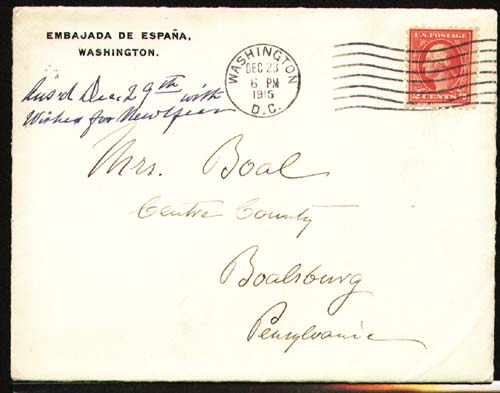 EMBAJADA DE ESPAÑA,
WASHINGTON.
Ans'd Dec. 29th with
Wishes for New Year
WASHINGTON
DEC 23
6 PM
1915
D.C.
U.S. POSTAGE
2 CENTS 2
Mrs. Boal
Centre County
Boalsburg
Pensylvania